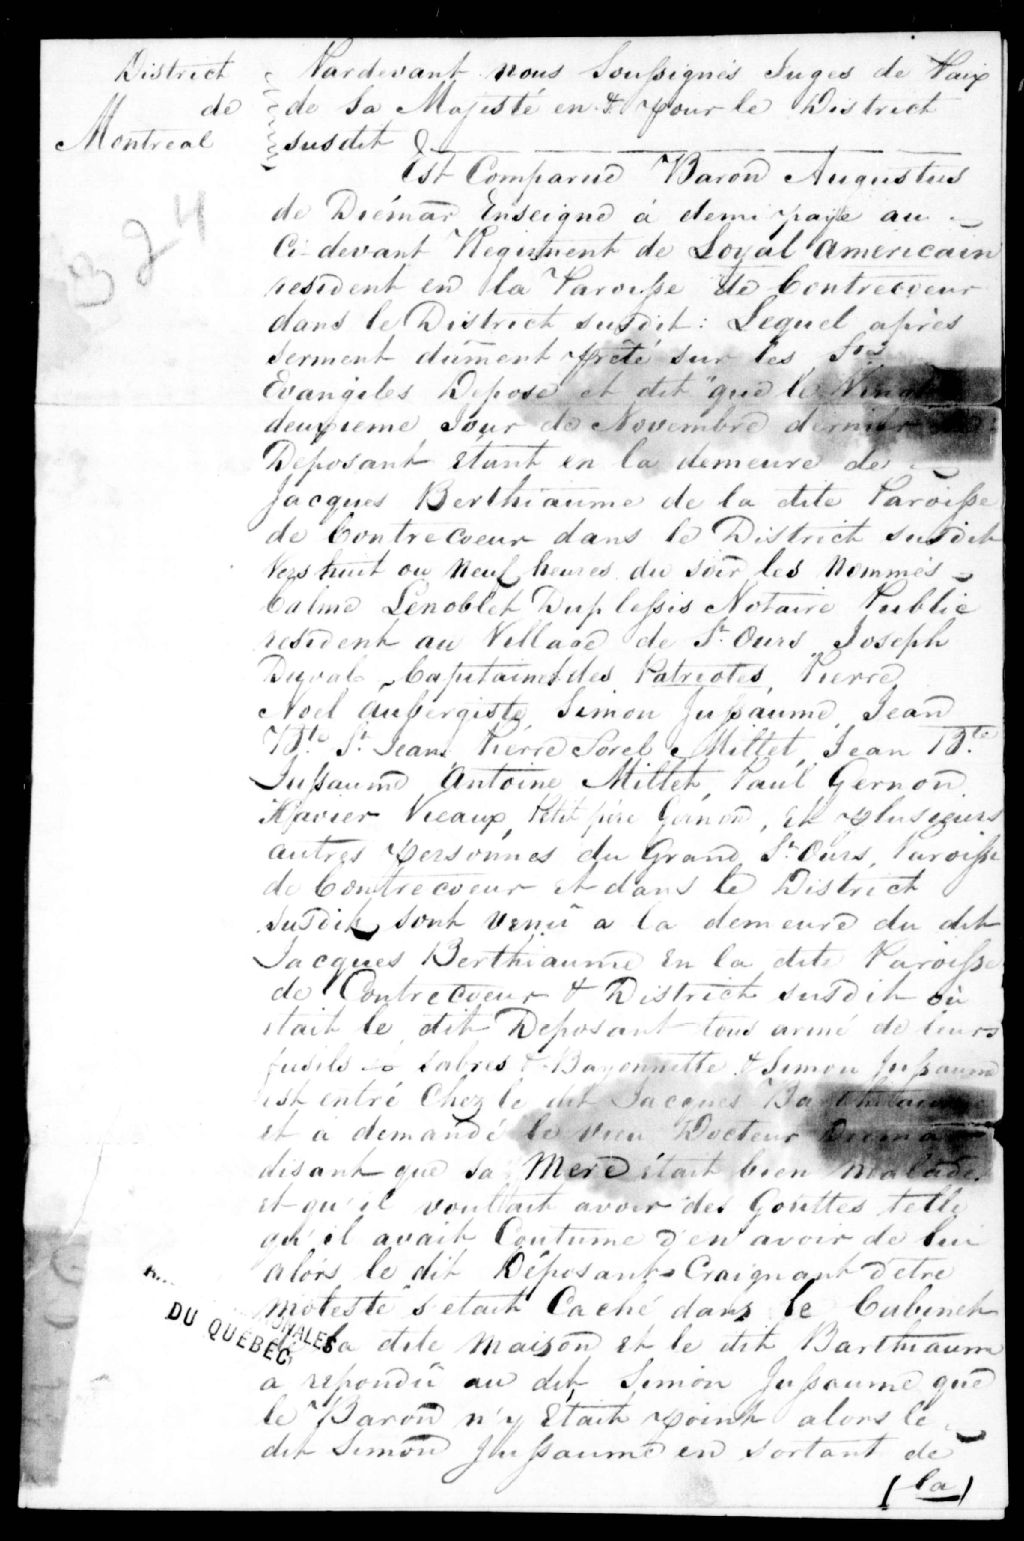 District
de
Montreal
324
Pardevant nous Soussignés Juges de Paix
de Sa Majesté en & pour le District
susdit
Est Comparue Baron Augustus
de Diémar Enseigne à demi paye au
Ci-devant Regiment de Loyal américain
resident en la Paroisse de Contrecoeur
dans le District susdit: Lequel après
serment dûment prêté sur les Sts
Evangiles Depose et dit que le Vingt
deuxieme Jour de Novembre dernier
Deposant étant en la demeure de
Jacques Berthiaume de la dite Paroisse
de Contrecoeur dans le District susdit
Vers huit ou Neuf heures du soir les Nommés
Lenoblet Duplessis Notaire Public
resident au Village de St Ours Joseph
Duval Capitaines des Patriotes, Pierre
Noel aubergiste, Simon Jussaume, Jean
Bte St Jean, Pierre Sorel Millet, Jean Bte
Jussaume Antoine Millet, Paul Gernon
Xavier Veaux, Petit père Gernon, et plusieurs
autres personnes du Grand St Ours, Paroisse
de Contrecoeur et dans le District
Susdit sont Venû a la demeure du dit
Jacques Berthiaume en la dite Paroisse
de Contrecoeur & District susdit où
était le dit Deposant tous armé de leurs
fusils sabres & Bayonnette & Simon Jussaume
est entré Chez le dit Jacques Barthiaume
et a demandé le vieu Docteur
disant que sa Mere était bien malade
et qu'il voullait avoir des Gouttes telle
qu'il avait Coutume d'en avoir de lui
alors le dit Déposant Craignant detre
molesté s'etait Caché dans le Cabinet
de la dite maison et le dit Barthiaume
a repondû au dit Simon Jussaume que
le Baron n'y Etait point alors le
dit Simon Jussaume en sortant de
(la)
DU QUÉBEC